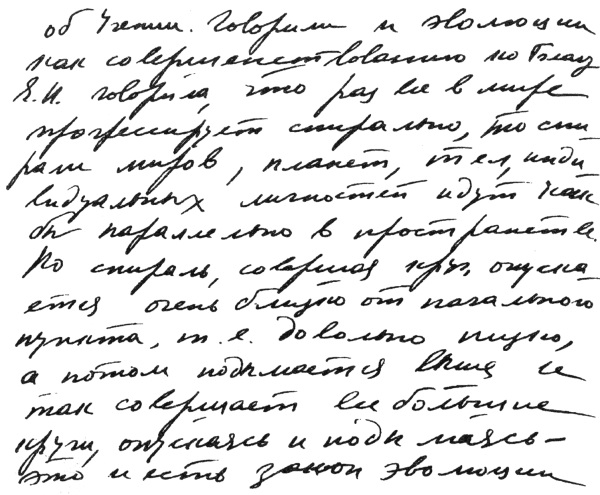 об Учении. Говорили и эволюции
как совершенствованию по
Е.И. говорила, что раз все в мире
прогрессирует спирально, то спи
рали миров, планет, тел, инди
видуальных личностей идут как
бы параллельно в пространстве.
Но спираль, совершая круг, опуска
ется очень близко от начального
пункта, т.е. довольно низко,
а потом подымается выше и
так совершает все большие
круги, опускаясь и подымаясь –
это и есть закон эволюции